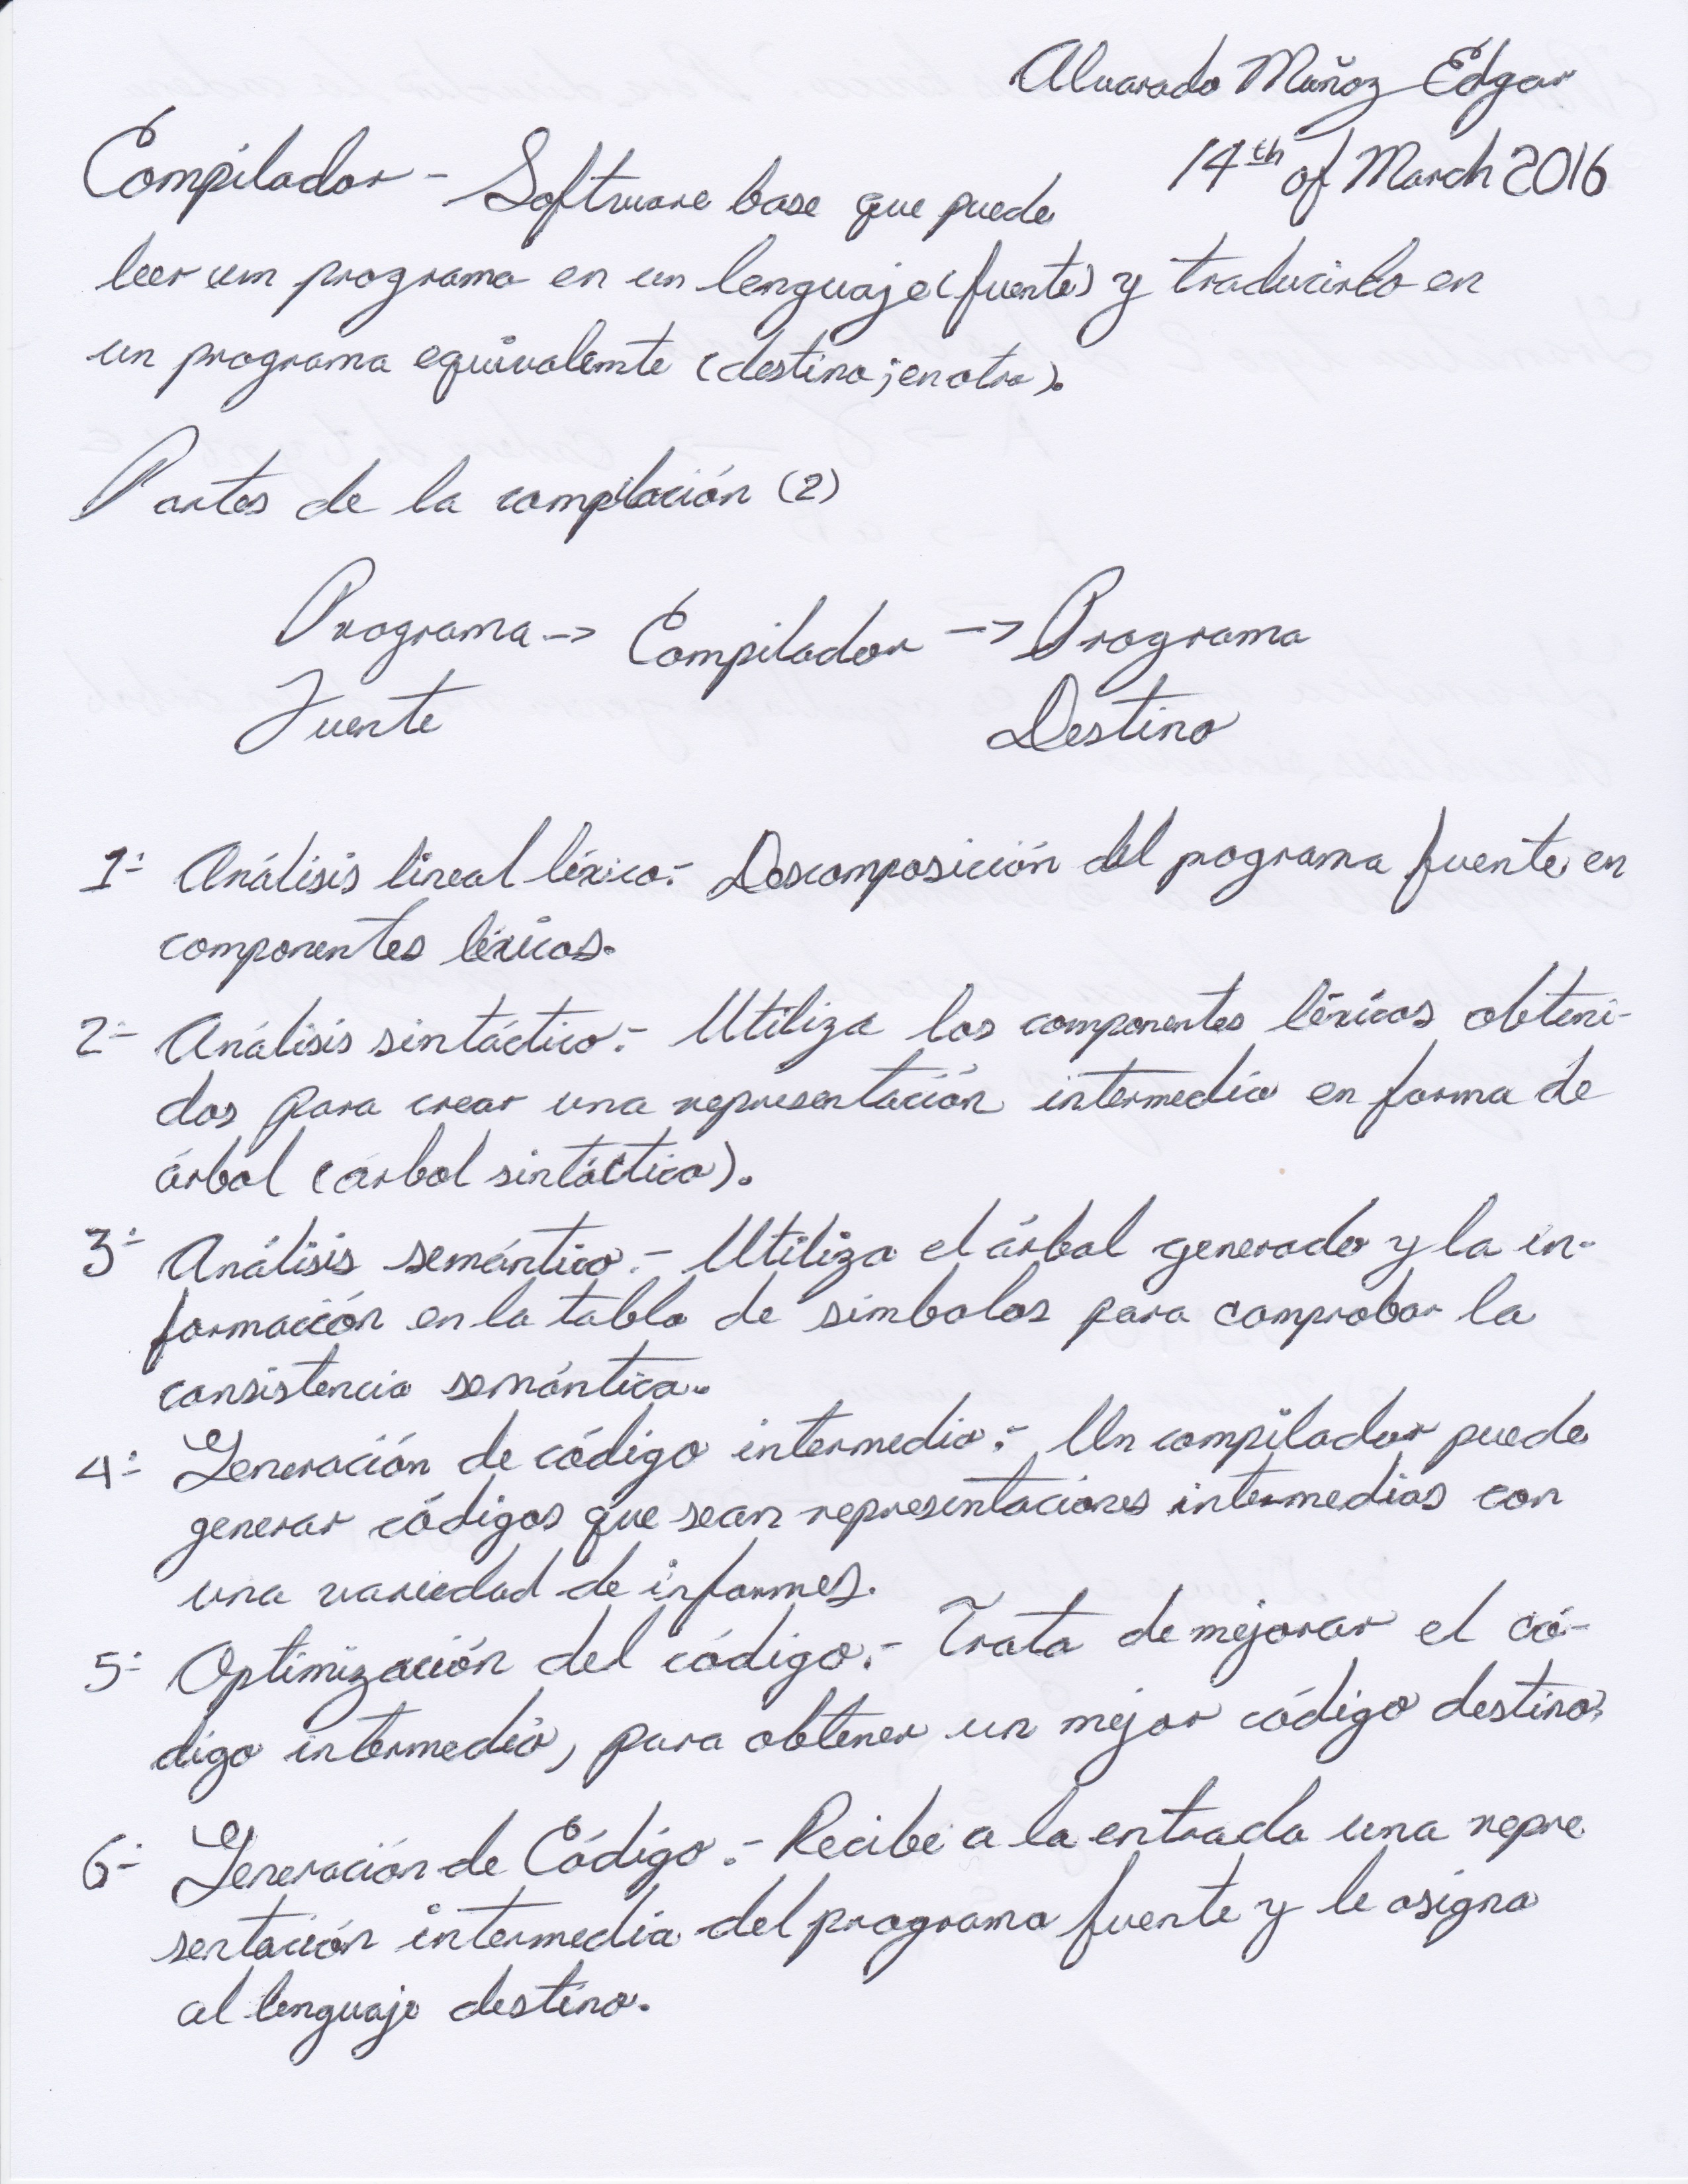 Alvarado Muñoz Edgar
14th of March 2016
Compilador - Software base que puede
leer un programa en un lenguaje (fuente) y traducirlo en
un programa equivalente (destino; en otro).
Partes de la compilación (2)
Programa -> Compilador -> Programa
Fuente Destino
1.- Análisis lineal léxico.- Descomposición del programa fuente en
componentes léxicos.
2.- Análisis sintáctico.- Utiliza los componentes léxicos obteni-
dos para crear una representación intermedia en forma de
árbol (árbol sintáctico).
3.- Análisis semántico.- Utiliza el árbol generado y la in-
formación en la tabla de símbolos para comprobar la
consistencia semántica.
4.- Generación de código intermedio.- Un compilador puede
generar códigos que sean representaciones intermedias con
una variedad de informes.
5.- Optimización del código.- Trata de mejorar el có-
digo intermedio, para obtener un mejor código destino.
6.- Generación de Código.- Recibe a la entrada una repre
sentación intermedia del programa fuente y le asigna
al lenguaje destino.